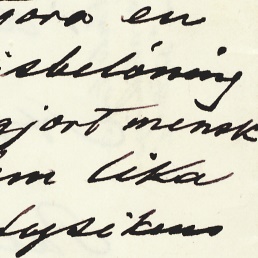 göra en
isbelöning
gjort mensk
em lika
fysikens